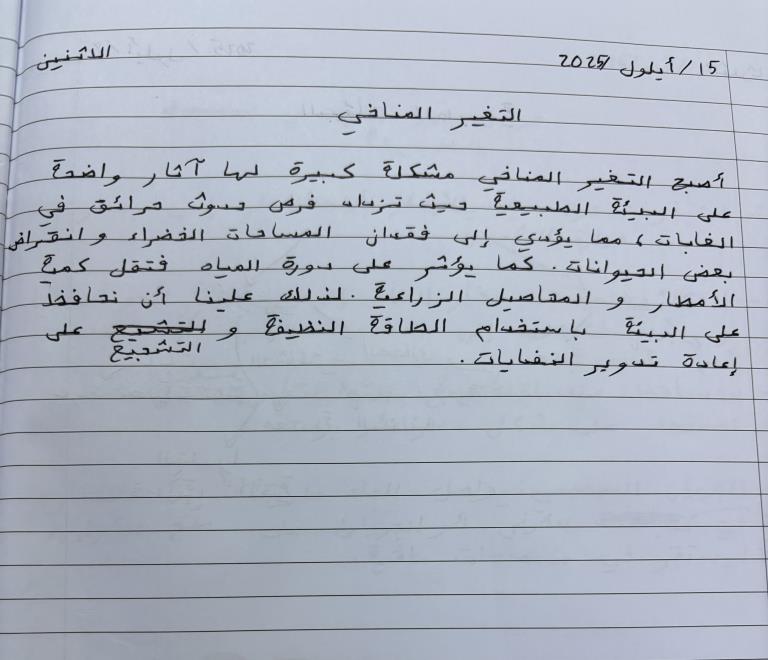 الاثنين
15/أيلول/2025
التغير المناخي
أصبح التغير المناخي مشكلة كبيرة لها آثار واضحة
على البيئة الطبيعية حيث تزداد فرص حدوث حرائق في
الغابات، مما يؤدي إلى فقدان المساحات الخضراء و انقراض
بعض الحيوانات. كما يؤثر على دورة المياه فتقل كمية
الأمطار و المحاصيل الزراعية. لذلك علينا أن نحافظ
على البيئة باستخدام الطاقة النظيفة و التشيع على
التشجيع
إعادة تدوير النفايات.